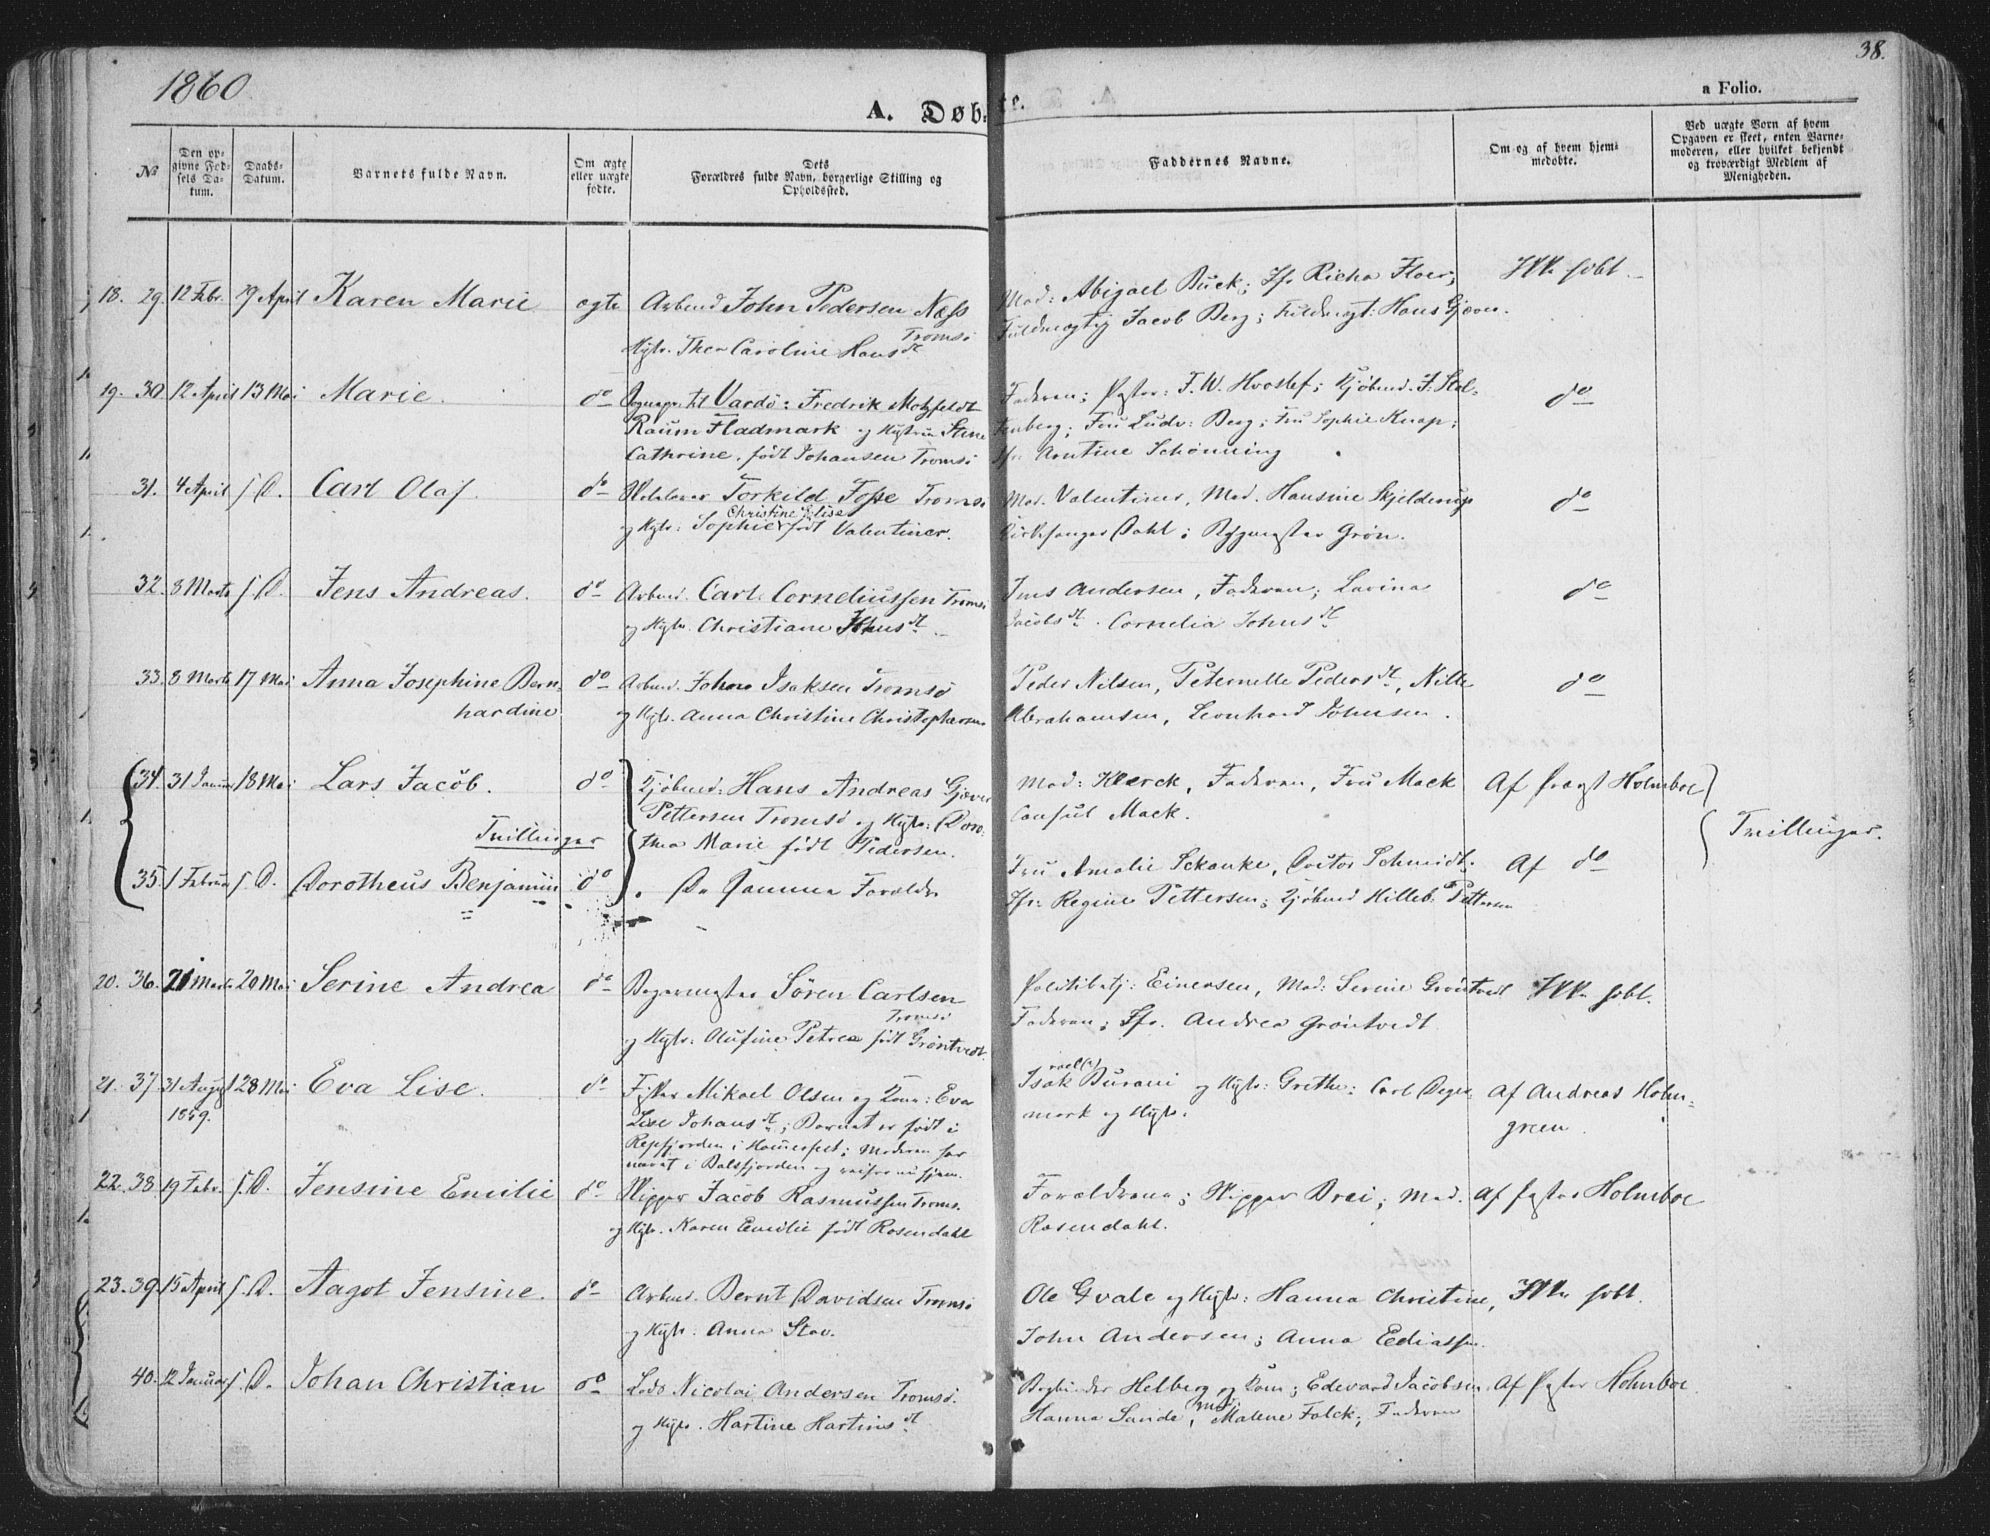 1860
38.
A. Døbte.
a Folio.
No
Den opgivne Fødsels Datum.
Daabs-Datum.
Barnets fulde Navn.
Om ægte eller uægte fødte.
Dets Forældres fulde Navn, borgerlige Stilling og Opholdssted.
Faddernes Navne.
Om og af hvem hjemmedøbte.
Ved uægte Born af hvem Opgaven er skeet, enten Barnemoderen, eller hvilket bekjendt og troværdigt Medlem af Menigheden.
18. 29. 12 Febr. 9 April Karen Marie ægte Arbmd John Pedersen Næss
Tromsö
Thea Caroline Hansdt
Mad: Abigael Buck; Jfr Floer;
Fuldmægtig Jacob Berg; Hans Gjæver.
Ikke
19. 30 12 April 13 Mai Marie. do til Vardö: Fredrik Motzfeldt
Raum Fladmark og Hustru Stine
Cathrine, født Johansen Tromsö
Faderen; F. W. Hvoslef; Kjöbmd. F. Stol-
tenberg; Fru Ludv: Berg; Fru Sophie Knap;
Jfr: Schönning
do
31. 4 April s. D. Carl Olaf. do Torkild Fosse Tromsö
Christine Elise
og Sophie født Valentiner.
Mad. Valentiner, Mad. Hansine Skjelderup
Kirkesanger Dahl; Grön.
do
32. 8 Marts s. D. Jens Andreas. do Arbmd. Carl Corneliussen Tromsö
og Christiane
Jens Andersen, Faderen; Lavina
Jacobsdt. Cornelia Johnsdt
do
33. 8 Marts 17 Mai Anna Josephine Bern-
hardine
do Arbmd. Johan Isaksen Tromsö
og Anna Christine Christophersen
Peder Nilsen, Peternelle Pedersdt, Nille
Abrahamsen, Leonhard Johnsen.
do
34. 31 Januar 18 Mai Lars Jacob. do Kjöbmd: Hans Andreas Gjæver
Pettersen Tromsö og Doro-
thea Marie født Pedersen.
Mad: Klerck, Faderen, Fru Mack
Consul Mack.
Af Holmboe
Tvillinger
Tvillinger.
35. 1 Februar s. D. Dorotheus Benjamin do De samme Forældre
Fru Amalie Schanke, Doctor Schmidt;
Jfr: Regine Pettersen; Kjöbmd Hilleb. Pettersen
Af do
20. 36. 21 Marts 20 Mai Serine Andrea do Bagermester Sören Carlsen
Tromsö
og Olufine Petrea født Gröntvedt.
Politibetj: Einersen, Mad: Serine Gröntvedt
Faderen; Jfr. Andrea Gröntvedt
Ikke
21. 37. 31 August 28 Mai Eva Lise. do Fisker Mikael Olsen og Kone: Eva
1859.
Lise Johansdt; Barnet er født i
Repefjorden i Hammerfest; Moderen har
været i Balsfjorden og reiser nu hjem.
Isak Burani og Grethe: Carl Deger-
mark og
Af Andreas Holm-
green.
22. 38. 19 Febr. s. D. Jensine Emilie do Skipper Jacob Rasmussen Tromsö
og Karen Emilie født Rosendahl
Forældrene; Skipper Brei; Mad.
Rosendahl.
Af Holmboe
23. 39. 15 April s. D. Aagot Jensine. do Arbmd. Bernt Davidsen Tromsö
og Anna Stav.
Ole Gvale og Hanna Christine,
John Andersen; Anna Ediassen.
Ikke
40. 12 Januar s. D. Johan Christian do Lods Nicolai Andersen Tromsö.
og Hartine Hartinsdt
Bogbinder Helberg og Kone; Edevard Jacobsen
Hanna Sande, Mad: Malene Falck; Faderen
Af Holmboe